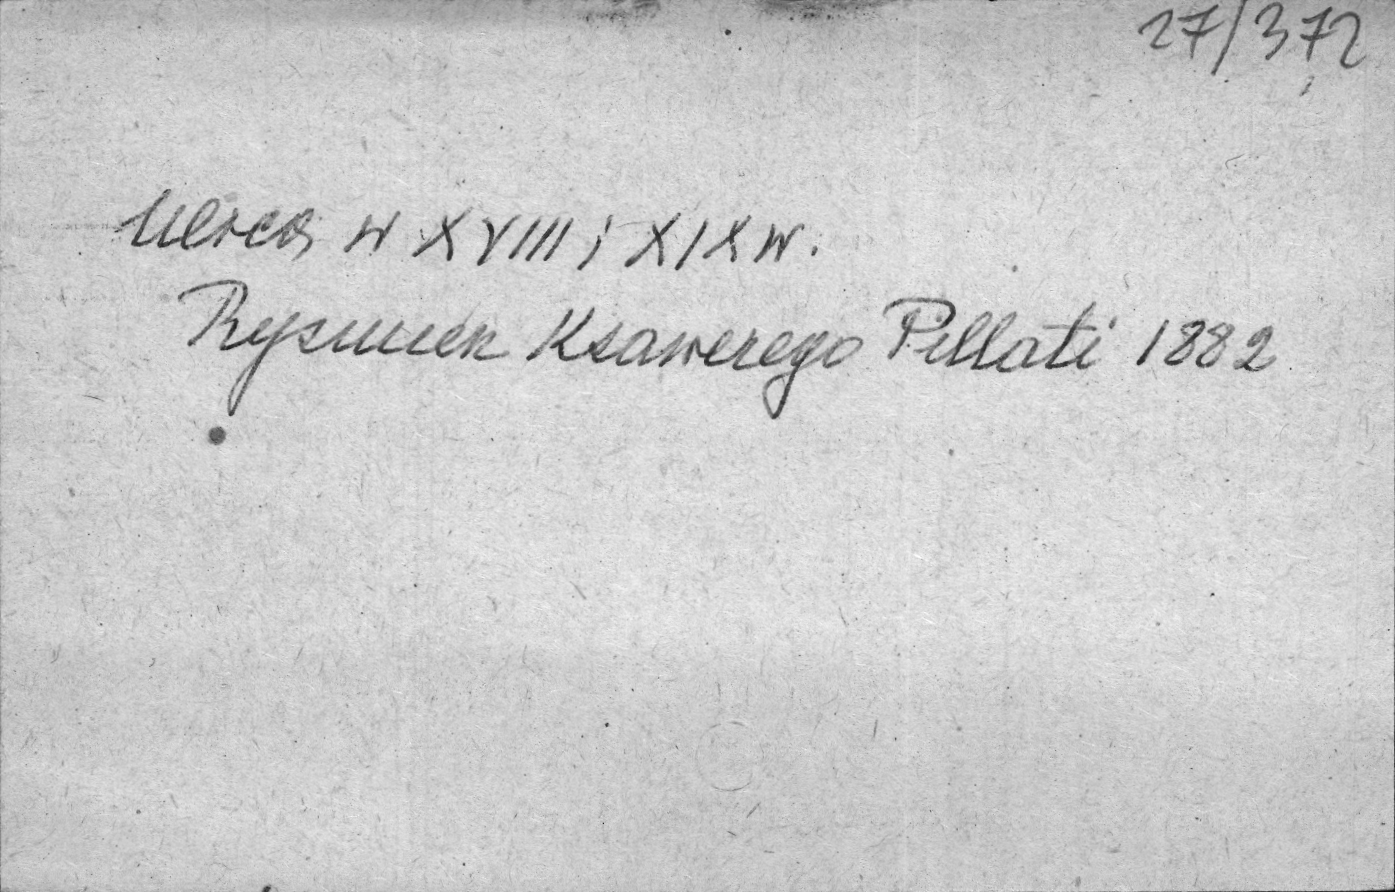 27/372
Ulica w XVIII i XIX w.
Rysunek Ksawerego Pillati 1882